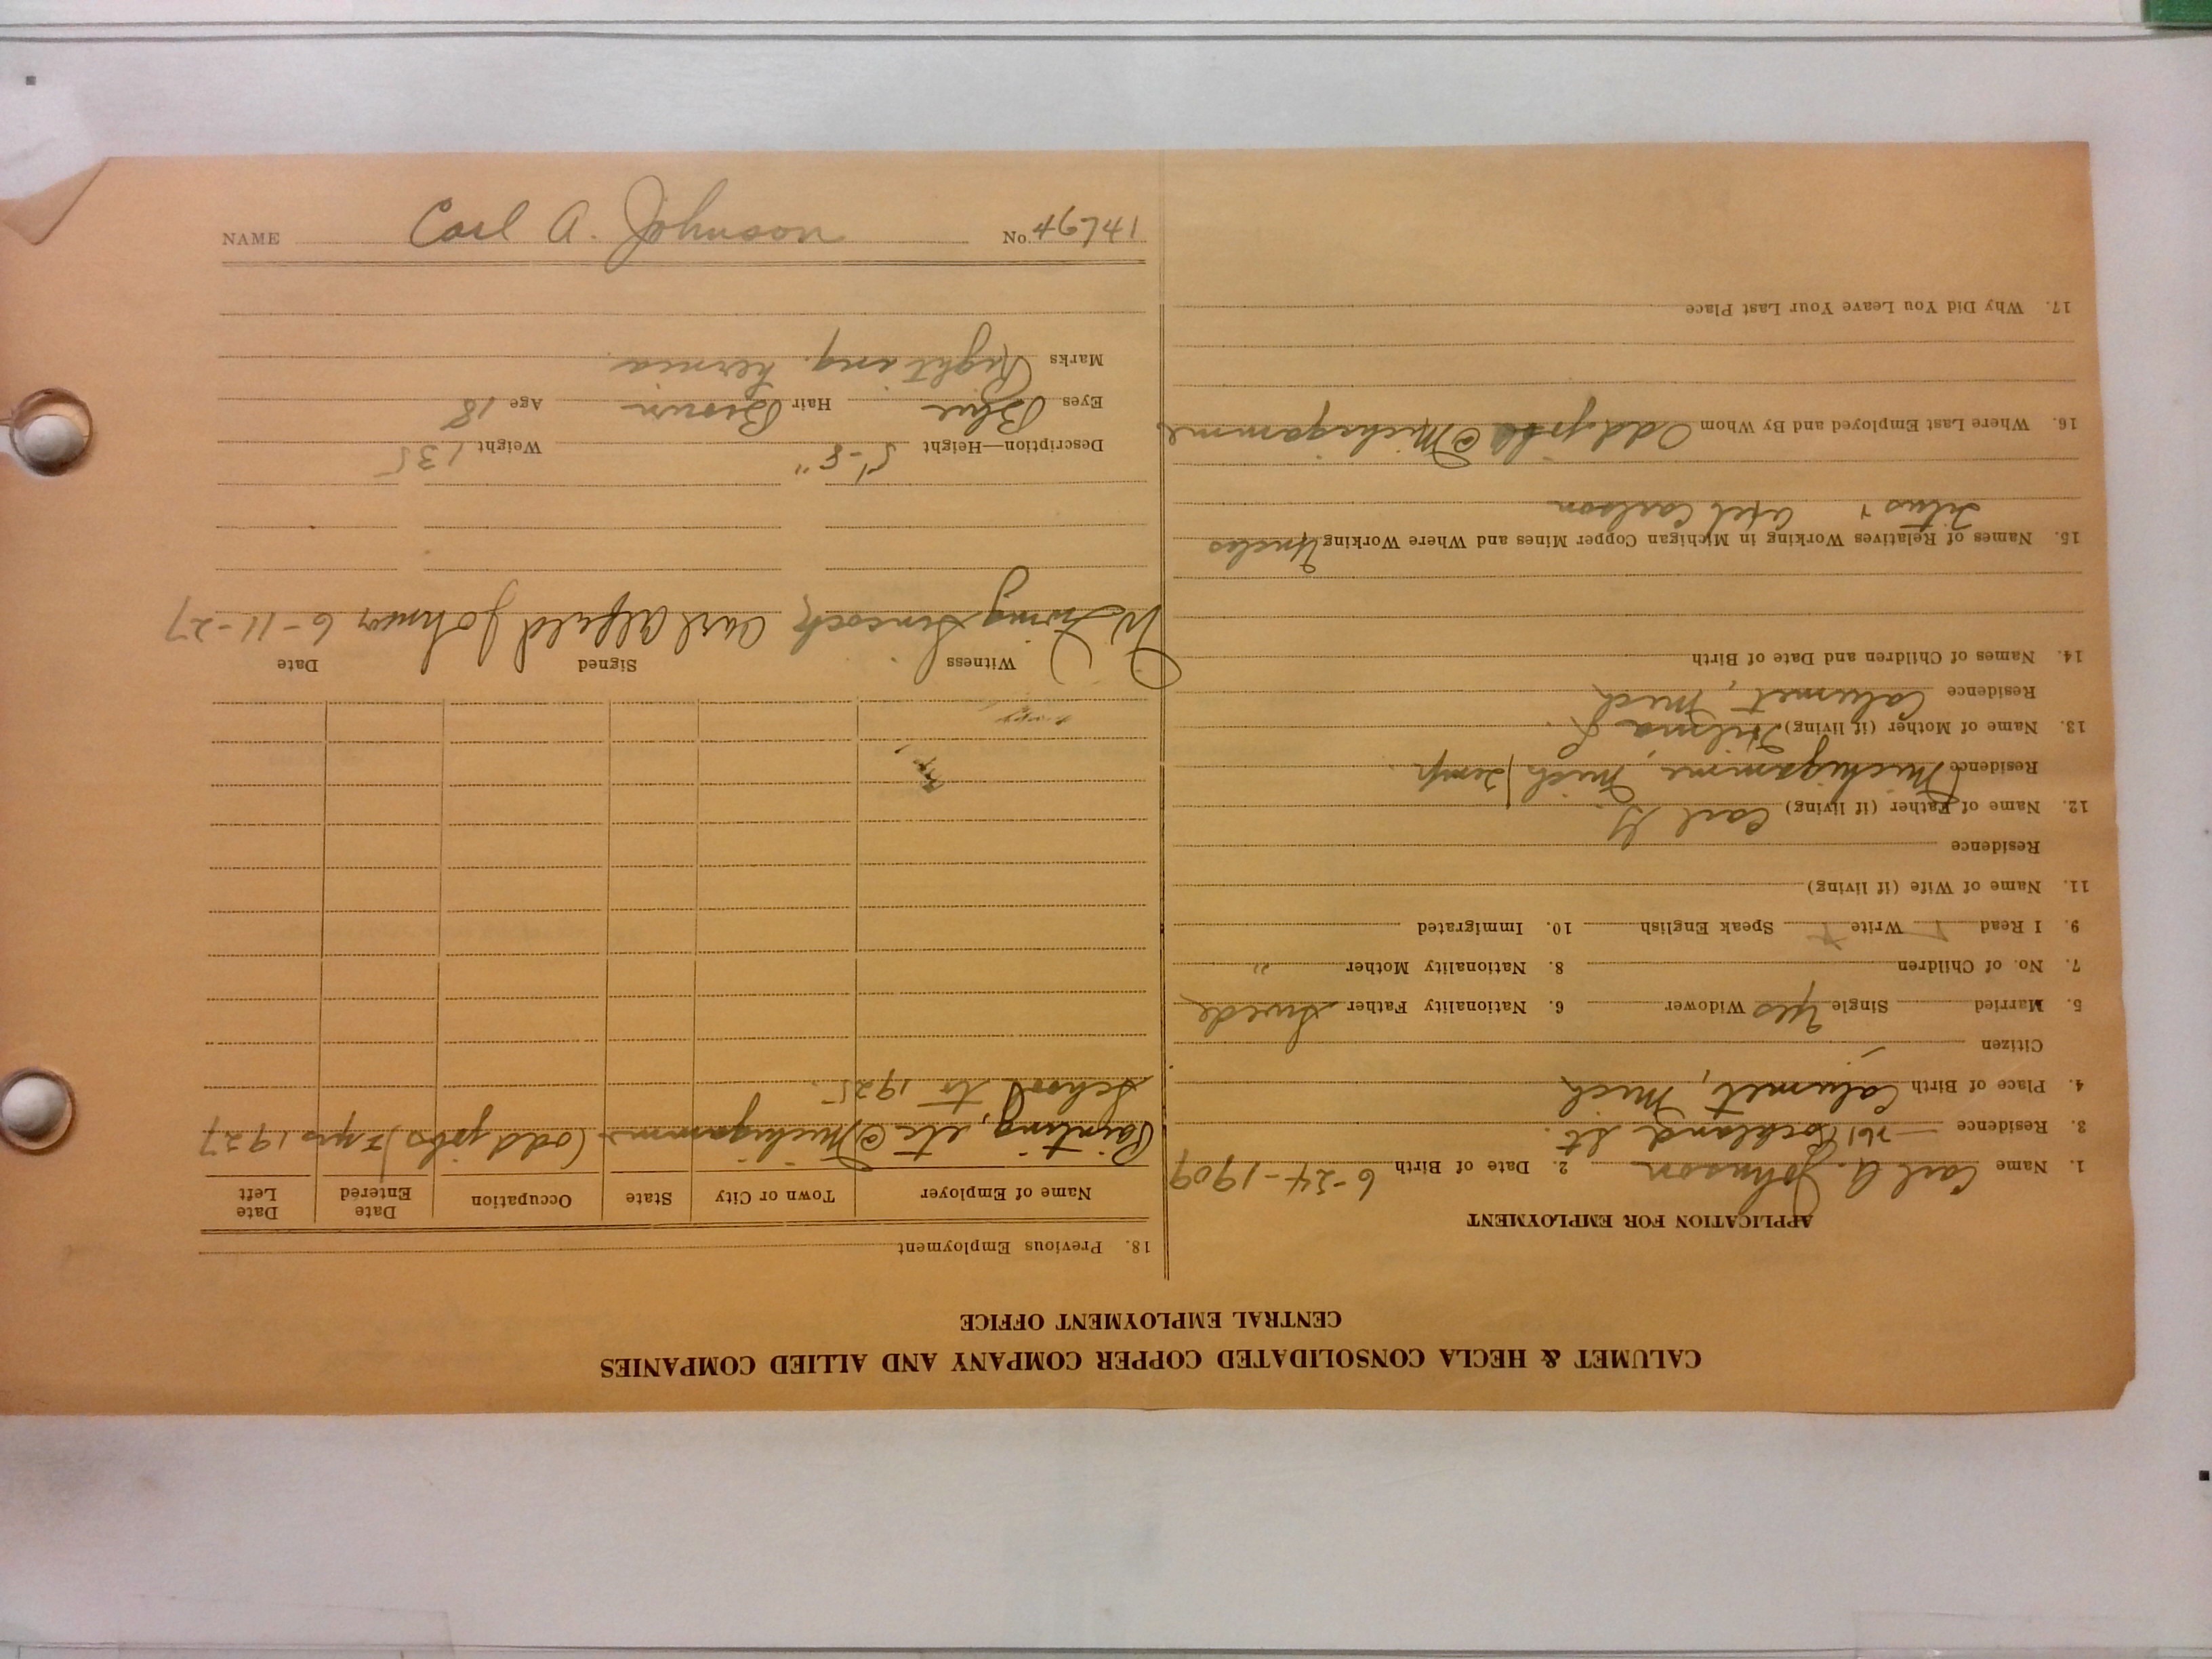 NAME Carl A. Johnson No. 46741
CALUMET & HECLA CONSOLIDATED COPPER COMPANY AND ALLIED COMPANIES
CENTRAL EMPLOYMENT OFFICE
APPLICATION FOR EMPLOYMENT
1. Name Carl A. Johnson 2. Date of Birth 6-24-1909
3. Residence Rockland St.
4. Place of Birth Calumet, Mich
Citizen
5. Married Single Yes Widower 6. Nationality Father Swede
7. No. of Children 8. Nationality Mother "
9. I Read Write Speak English 10. Immigrated
11. Name of Wife (if living)
Residence
12. Name of Father (if living) Carl G.
Residence Michigamme, Mich temp.
13. Name of Mother (if living) Hilma J.
Residence Calumet, Mich
14. Names of Children and Date of Birth
15. Names of Relatives Working in Michigan Copper Mines and Where Working Uncles
Titus & Axel Carlson
16. Where Last Employed and By Whom Odd jobs @ Michigamme
17. Why Did You Leave Your Last Place
18. Previous Employment
Name of Employer Town or City State Occupation Date Entered Date Left
Painting, etc @ Michigamme (odd jobs) 2 yrs 1927
School to 1925.
Witness Signed Date
Carl Alfred Johnson 6-11-27
Description—Height 5'-8" Weight 135
Eyes Blue Hair Brown Age 18
Marks Right ing. hernia